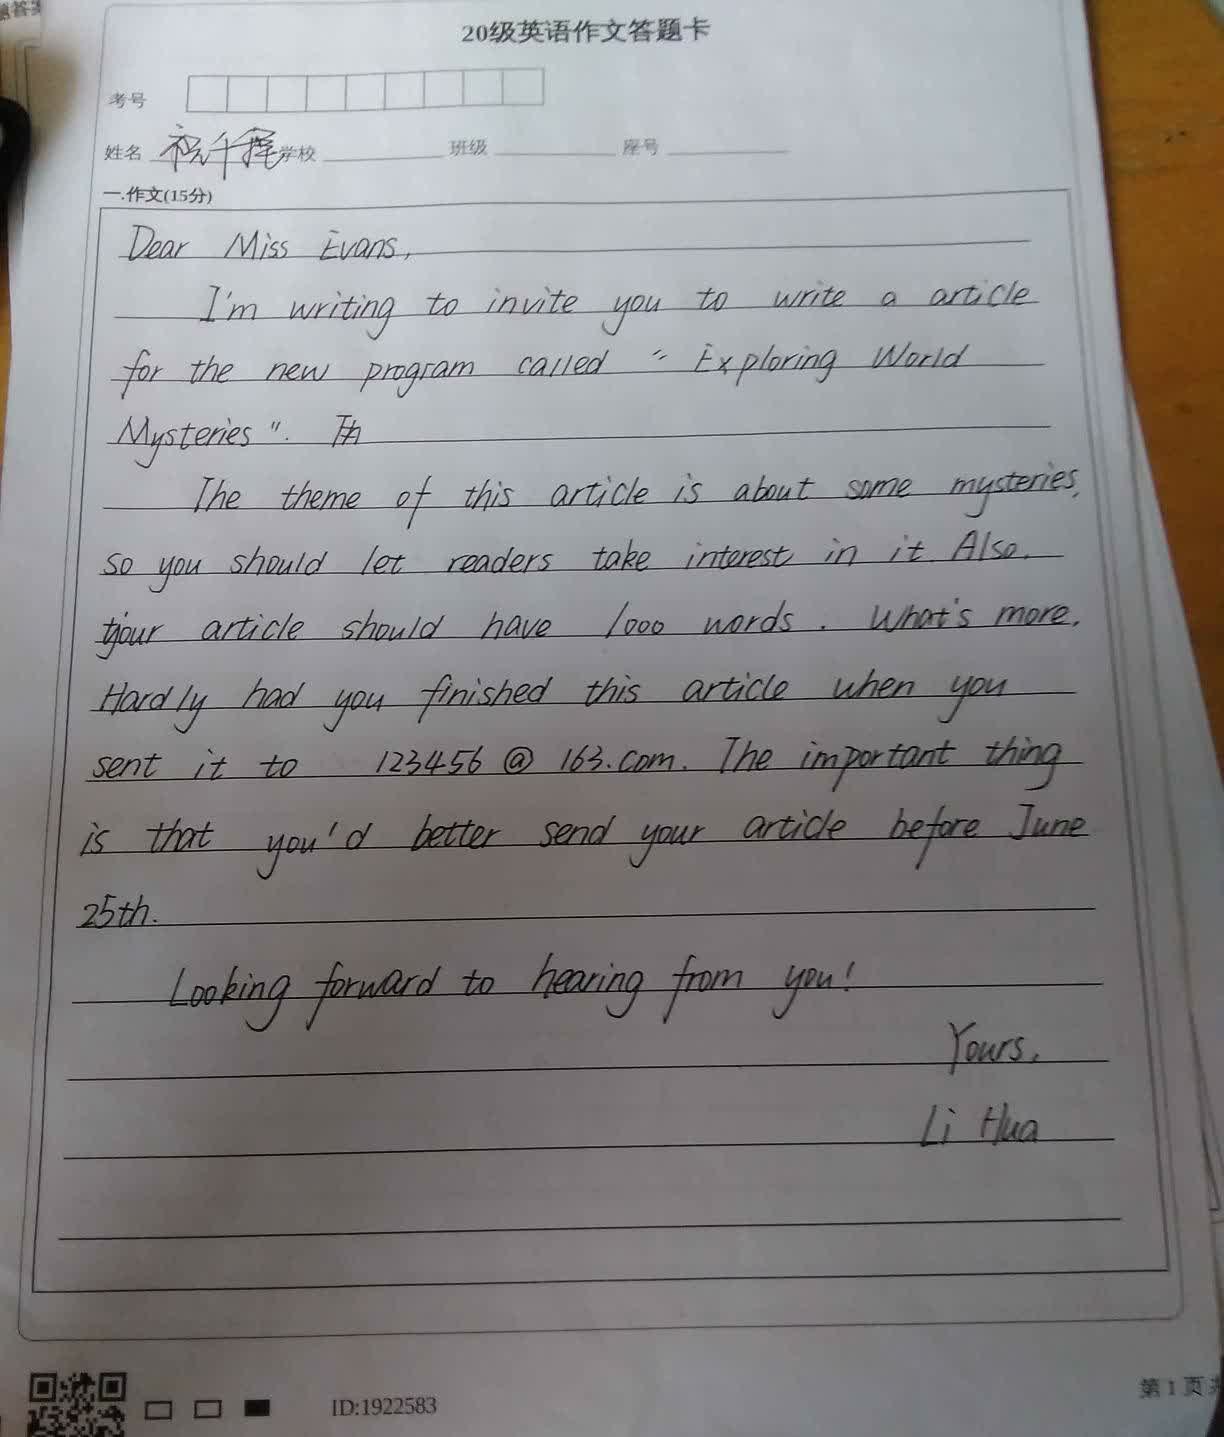 20级英语作文答题卡
考号
姓名 祝千 学校 班级 座号
一.作文(15分)
Dear Miss Evans,
I'm writing to invite you to write a article
for the new program called "Exploring World
Mysteries".
The theme of this article is about some mysteries,
so you should let readers take interest in it. Also,
your article should have 1000 words. What's more,
Hardly had you finished this article when you
sent it to 123456@163.com. The important thing
is that you'd better send your article before June
25th.
Looking forward to hearing from you!
Yours,
Li Hua
ID:1922583
第 1 页